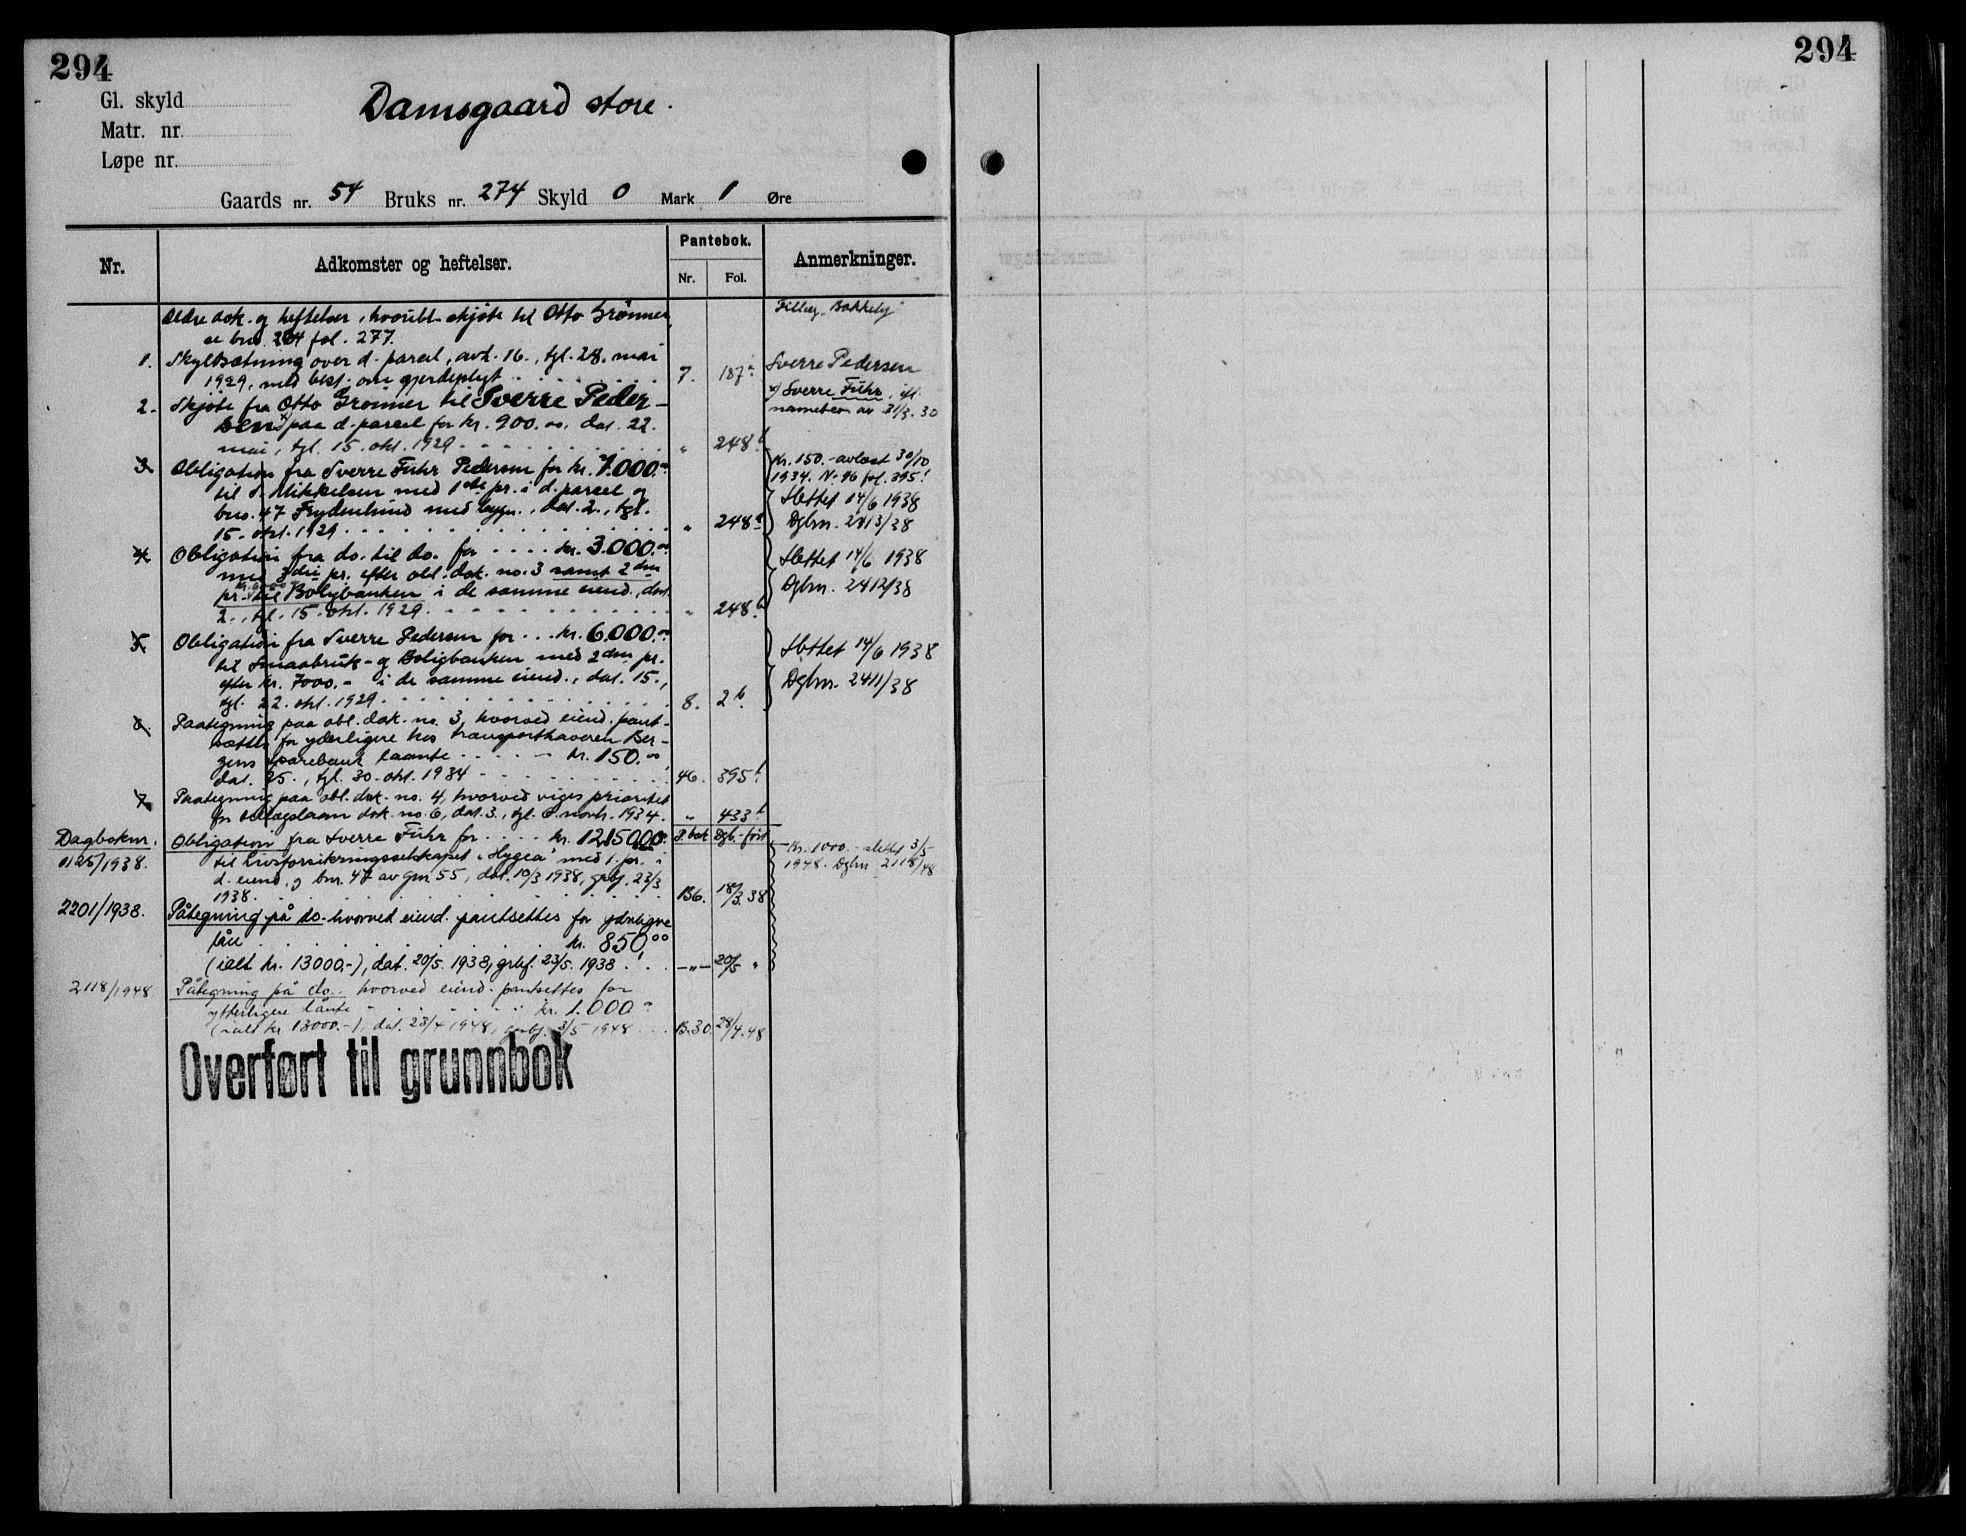 294
294
Gl. skyld
Damsgaard store.
Matr. nr.
Løpe nr.
Gaards nr. 54 Bruks nr. 274 Skyld 0 Mark 1 Øre
Nr.
Adkomster og heftelser.
Pantebok.
Nr. Fol.
Anmerkninger.
Ældre dok. og heftelser, hvoribl. skjøte til Otto Grønner,
se bno. 204 fol. 277.
Tillæg „Bakkely"
1. Skyldsætning over d. parcel, avh. 16., tgl. 28. mai
1929, med best. om gjerdepligt 7. 187a
Sverre Pedersen
x) Sverre Fuhr, ifl.
navnebev. av 31/3. 30
2. Skjøte fra Otto Grønner til Sverre Peder-
sen x) paa d. parcel for kr. 900.00, dat. 22.
mai, tgl. 15. okt. 1929 „ 248b
3. Obligation fra Sverre Fuhr Pedersen for kr. 7.000.00
til S. Mikkelsen med 1ste pr. i d. parcel og
bno. 47 Frydenlund med bygn., dat. 2., tgl.
15. okt. 1929 „ 248b
Kr. 150.- avlæst 30/10
1934. N. 46 fol. 395b
Slettet 14/6 1938
Dgbnr. 2413/38
4. Obligation fra do. til do. for kr. 3.000.00
med 3die pr. efter obl. dok. no. 3 samt 2den
pr. kr. 6000 til Boligbanken i de samme eiend., dat.
2., tgl. 15. okt. 1929 „ 248b
Slettet 14/6 1938
Dgbnr. 2412/38
5. Obligation fra Sverre Pedersen for kr. 6.000.00
til Smaabruk- og Boligbanken med 2den pr.
efter kr. 7000.- i de samme eiend., dat. 15.,
tgl. 22. okt. 1929 8. 2b
Slettet 14/6 1938
Dgbnr. 2411/38
6. Paategning paa obl. dok. no. 3, hvorved eiend. pant-
sættes for yderligere hos transporthaveren Ber-
gens Sparebank laante kr. 150.00,
dat. 25., tgl. 30. okt. 1934 46. 395b
7. Paategning paa obl. dok. no. 4, hvorved viges prioritet
for tillægslaan dok. no. 6, dat. 3., tgl. 6. novbr. 1934. „ 433b
Dagboknr.
1125/1938.
Obligation fra Sverre Fuhr for kr. 12.150.00 P.bok Dgb.-ført
til Livsforsikringsselskapet „Hygea" med 1. pr. i
d. eiend. og bnr. 47 av gnr. 55, dat. 10/3 1938, grbf. 23/3
1938. B6. 18/3. 38
Kr. 1000.- slettet 3/5
1948. Dgbnr 2118/48
2201/1938. Påtegning på do. hvorved eiend. pantsettes for yderligere
lån kr. 850.00
(ialt kr. 13000.-), dat. 20/5. 1938, grbf. 23/5. 1938 -„- 20/5 „
2118/1948 Påtegning på do. hvorved eiend. pantsettes for
ytterligere lånte kr. 1.000
(ialt kr. 13000.-), dat. 23/4 1948, grbf. 3/5 1948 B.30. 28/4.48
Overført til grunnbok